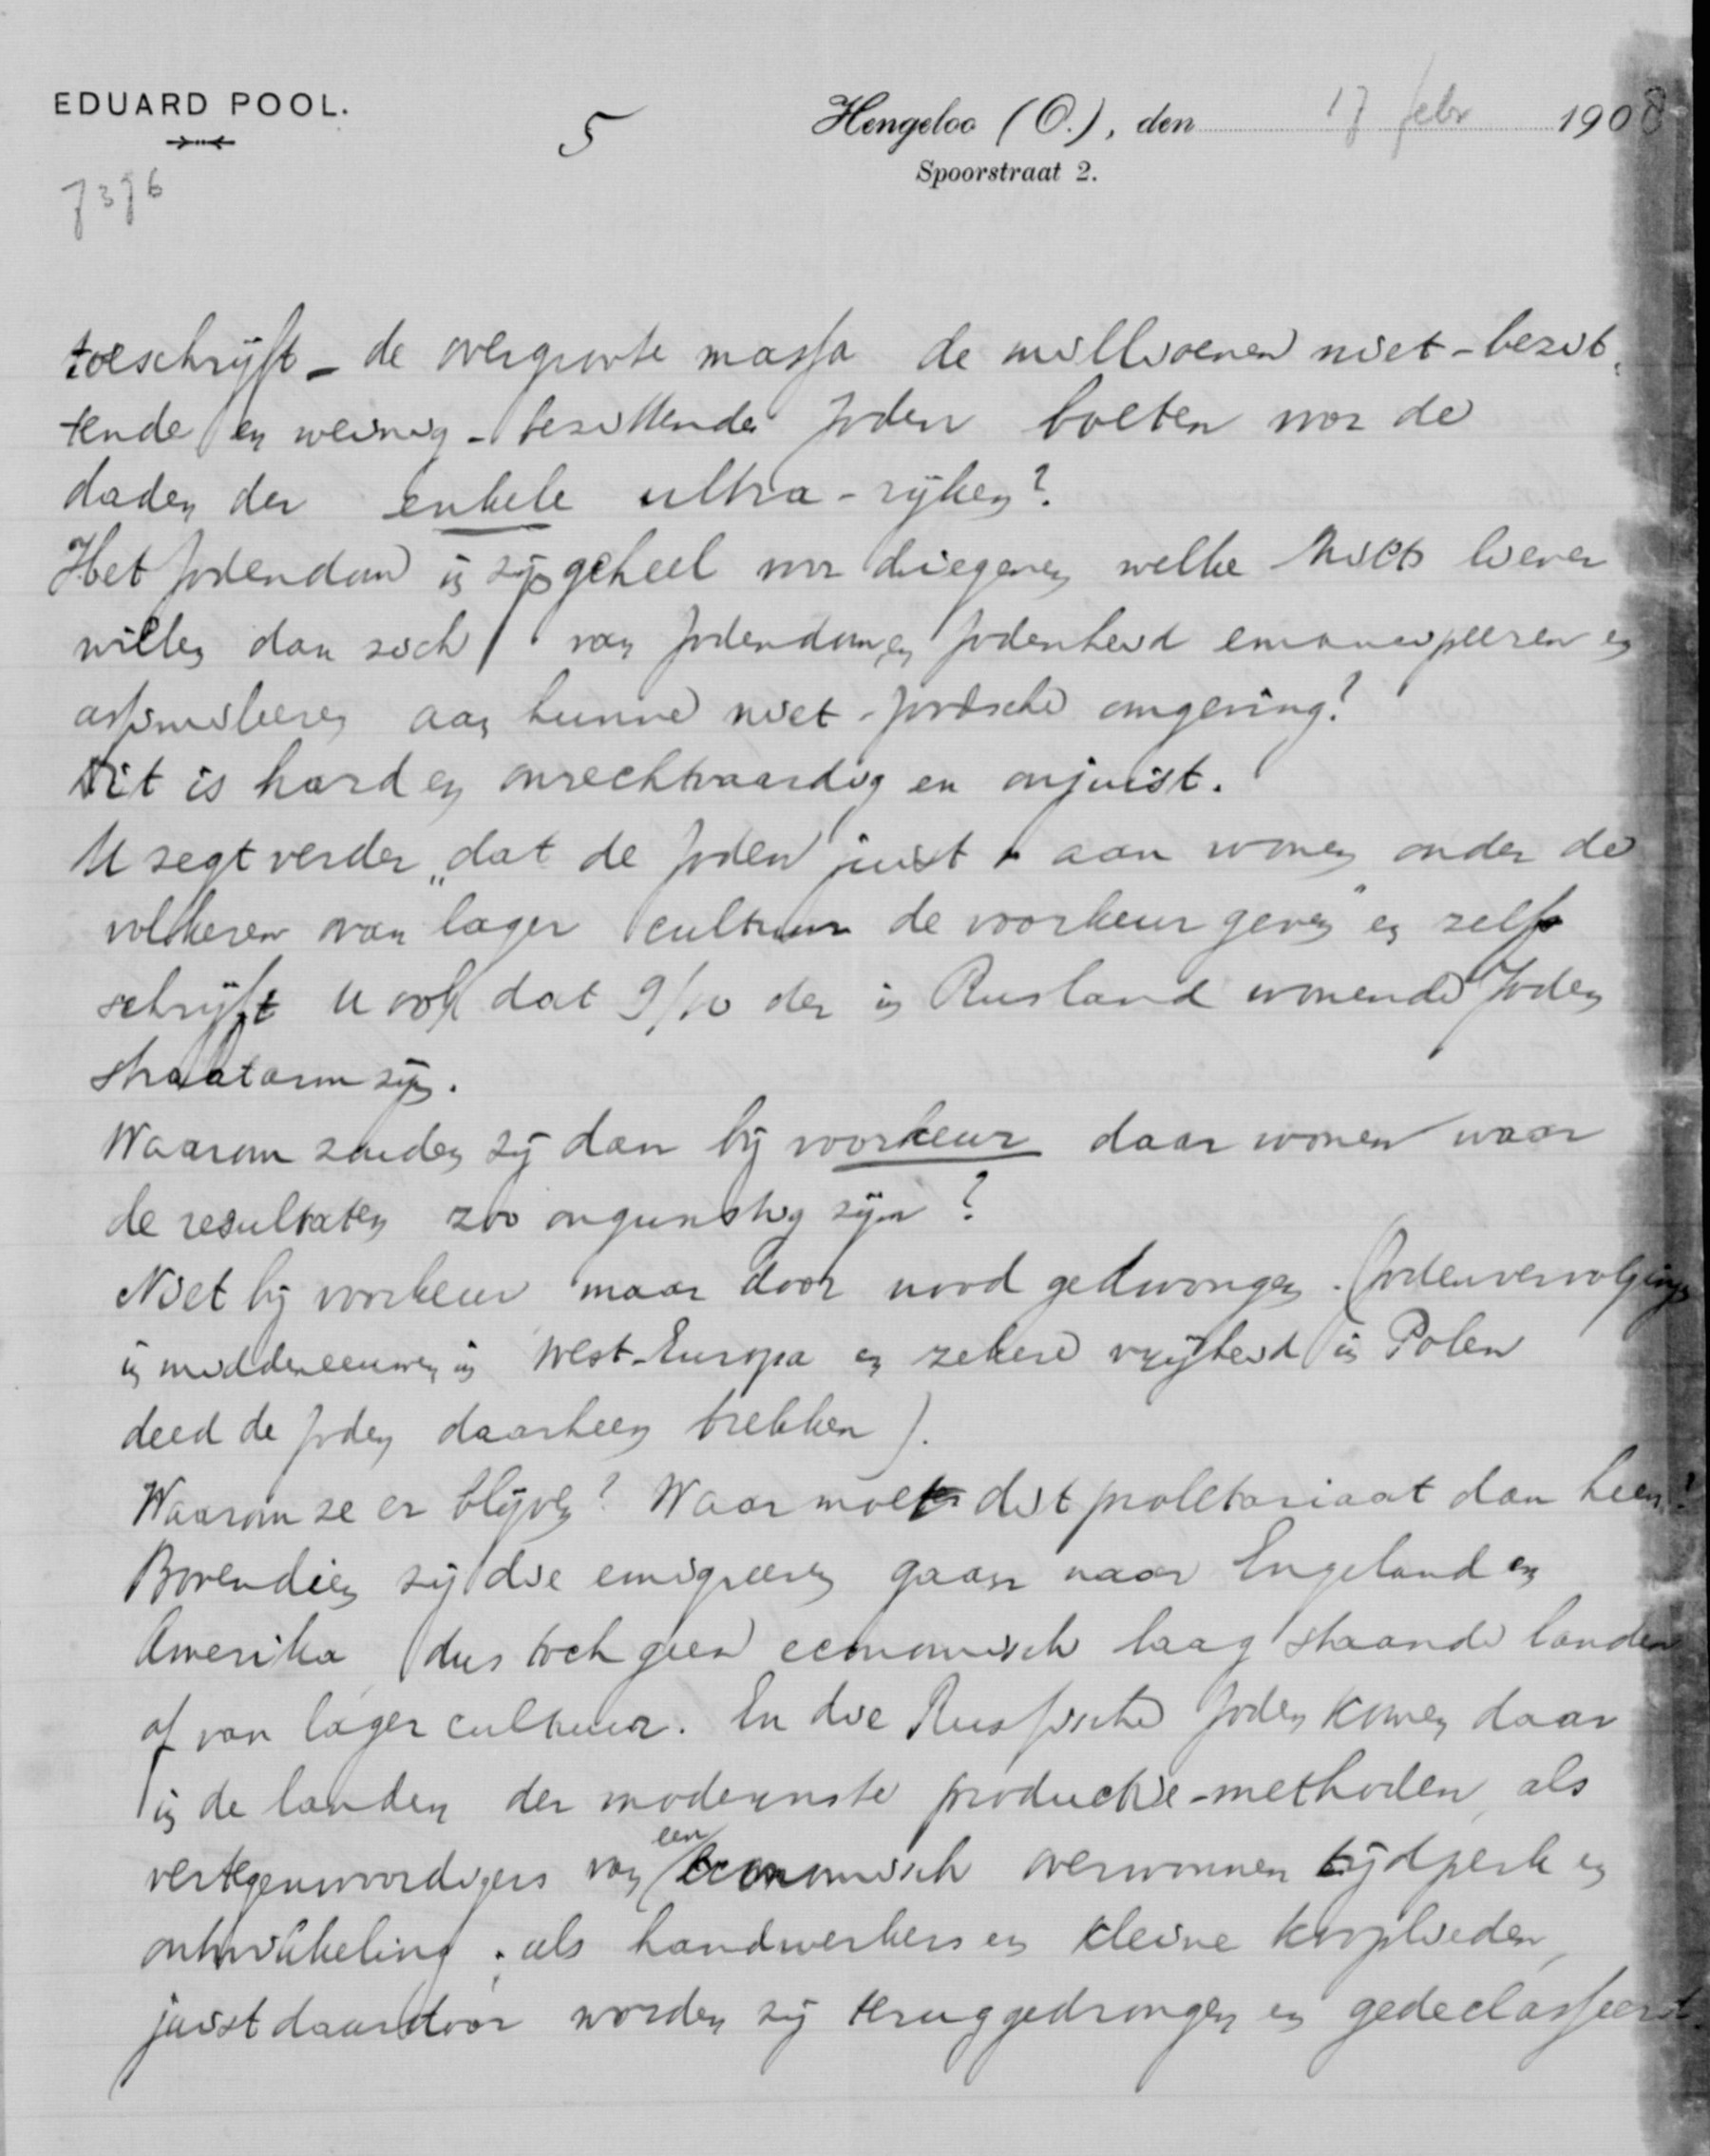 EDUARD POOL.
5
Hengeloo (O.), den 17 febr 1908
Spoorstraat 2.
7376
toeschrijft - de overgroote massa de millioenen niet-bezit-
tende en weinig-bezittende Joden boeten voor de
daden der enkele ultra-rijken?
Het Jodendom in zijn geheel voor diegenen welke niets liever
willen dan zich van Jodendom en Jodenheid emancipeeren en
assimileeren aan hunne niet-Joodsche omgeving?
Dit is hard en onrechtvaardig en onjuist.
U zegt verder „dat de Joden juist aan wonen onder de
volkeren van lager cultuur de voorkeur geven" en zelf
schrijft U ook dat 9/10 der in Rusland wonende Joden
straatarm zijn.
Waarom zouden zij dan bij voorkeur daar wonen waar
de resultaten zoo ongunstig zijn?
Niet bij voorkeur maar door nood gedwongen. (Jodenvervolgingen
in middeneeuwen in West-Europa en zekere vrijheid in Polen
deed de Joden daarheen trekken).
Waarom ze er blijven? Waar moet dit proletariaat dan heen?
Bovendien zij die emigreeren gaan naar Engeland en
Amerika dus toch geen economisch laag staande landen
of van lager cultuur. En die Russische Joden komen daar
in de landen der modernste productie-methoden, als
vertegenwoordigers van een economisch overwonnen tijdperk en
ontwikkeling; als handwerkers en kleine kooplieden,
juist daardoor worden zij teruggedrongen en gedeclasseerd.